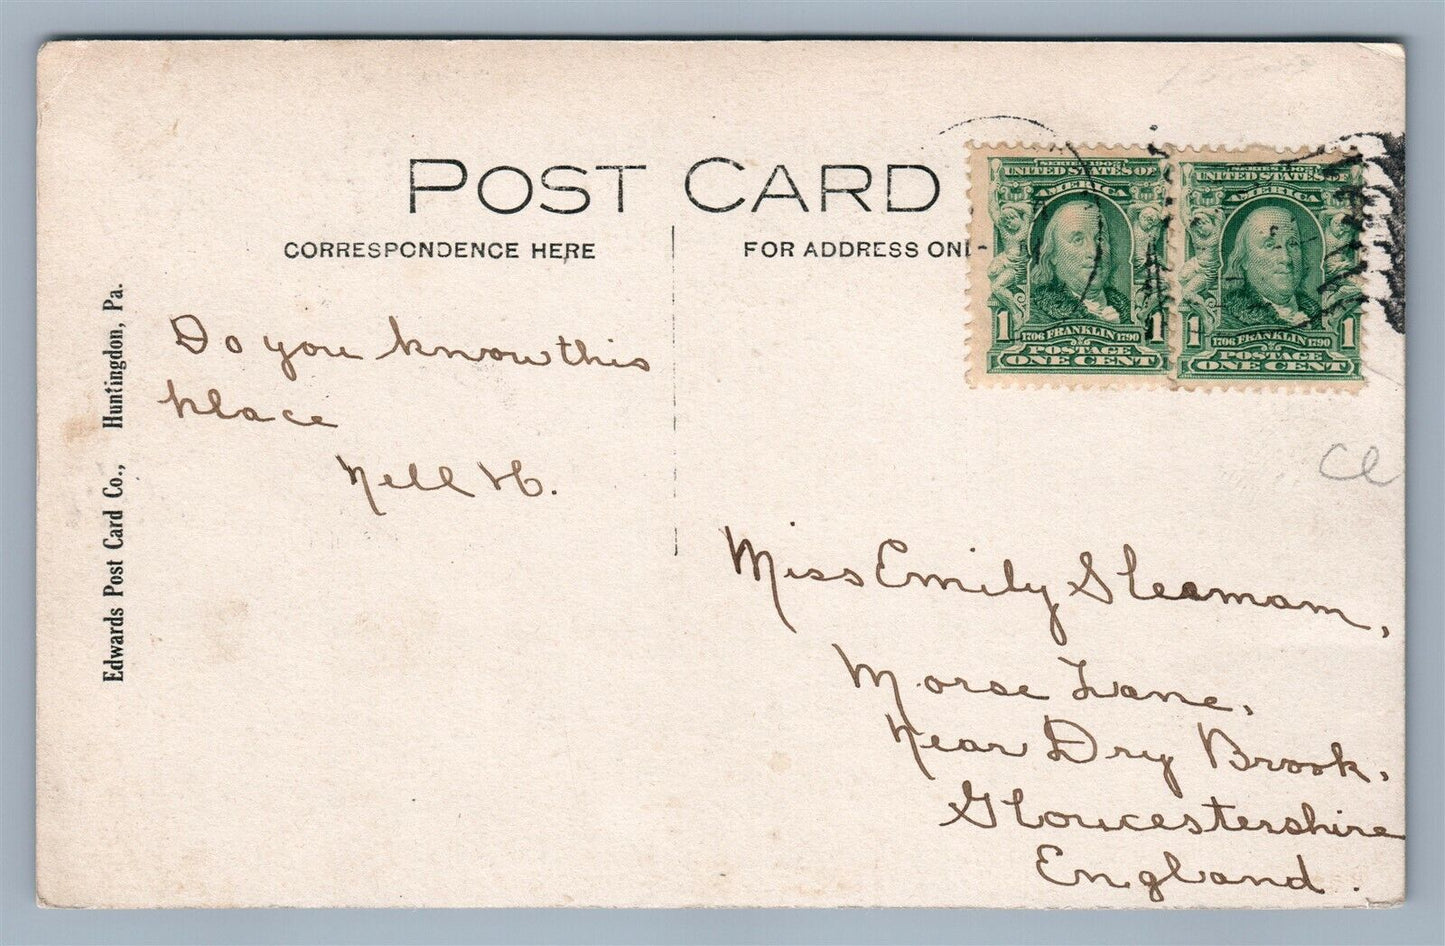 POST CARD
CORRESPONDENCE HERE
FOR ADDRESS ONL
Edwards Post Card Co., Huntingdon, Pa.
Do you know this
place
Nell H.
SERIES 1902
UNITED STATES OF
AMERICA
1 1
1706 FRANKLIN 1790
POSTAGE
ONE CENT
SERIES 1902
UNITED STATES OF
AMERICA
1 1
1706 FRANKLIN 1790
POSTAGE
ONE CENT
Miss Emily
Morse Lane,
Near Dry Brook.
Gloucestershire
England.